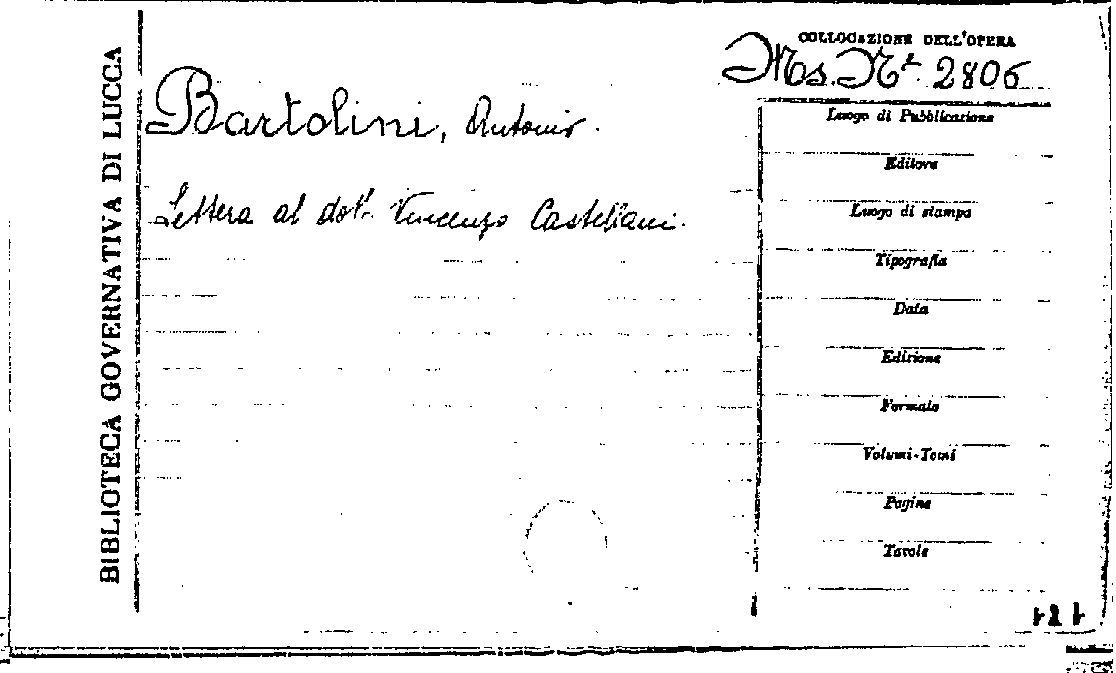 BIBLIOTECA GOVERNATIVA DI LUCCA
COLLOCAZIONE DELL'OPERA
Ms. Nº 2806
Bartolini, Antonio.
Lettera al dott. Vincenzo Castellani.
Luogo di Pubblicazione
Editore
Luogo di stampa
Tipografia
Data
Edizione
Formato
Volumi-Tomi
Pagine
Tavole